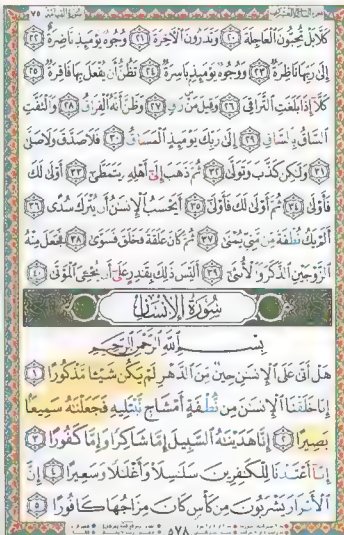 كَلَّا بَلْ تُحِبُّونَ ٱلْعَاجِلَةَ ٢٠ وَتَذَرُونَ ٱلْـَٔاخِرَةَ ٢١ وُجُوهٌ يَوْمَئِذٍ نَّاضِرَةٌ ٢٢
إِلَىٰ رَبِّهَا نَاظِرَةٌ ٢٣ وَوُجُوهٌ يَوْمَئِذٍۭ بَاسِرَةٌ ٢٤ تَظُنُّ أَن يُفْعَلَ بِهَا فَاقِرَةٌ ٢٥
كَلَّآ إِذَا بَلَغَتِ ٱلتَّرَاقِىَ ٢٦ وَقِيلَ مَنْ ۜ رَاقٍ ٢٧ وَظَنَّ أَنَّهُ ٱلْفِرَاقُ ٢٨ وَٱلْتَفَّتِ
ٱلسَّاقُ بِٱلسَّاقِ ٢٩ إِلَىٰ رَبِّكَ يَوْمَئِذٍ ٱلْمَسَاقُ ٣٠ فَلَا صَدَّقَ وَلَا صَلَّىٰ
٣١ وَلَٰكِن كَذَّبَ وَتَوَلَّىٰ ٣٢ ثُمَّ ذَهَبَ إِلَىٰٓ أَهْلِهِۦ يَتَمَطَّىٰٓ ٣٣ أَوْلَىٰ لَكَ
فَأَوْلَىٰ ٣٤ ثُمَّ أَوْلَىٰ لَكَ فَأَوْلَىٰٓ ٣٥ أَيَحْسَبُ ٱلْإِنسَٰنُ أَن يُتْرَكَ سُدًى ٣٦
أَلَمْ يَكُ نُطْفَةً مِّن مَّنِىٍّ يُمْنَىٰ ٣٧ ثُمَّ كَانَ عَلَقَةً فَخَلَقَ فَسَوَّىٰ ٣٨ فَجَعَلَ مِنْهُ
ٱلزَّوْجَيْنِ ٱلذَّكَرَ وَٱلْأُنثَىٰٓ ٣٩ أَلَيْسَ ذَٰلِكَ بِقَٰدِرٍ عَلَىٰٓ أَن يُحْـِۧىَ ٱلْمَوْتَىٰ ٤٠
سُورَةُ الإِنْسَانِ
بِسْمِ ٱللَّهِ ٱلرَّحْمَٰنِ ٱلرَّحِيمِ
هَلْ أَتَىٰ عَلَى ٱلْإِنسَٰنِ حِينٌ مِّنَ ٱلدَّهْرِ لَمْ يَكُن شَيْـًٔا مَّذْكُورًا ١
إِنَّا خَلَقْنَا ٱلْإِنسَٰنَ مِن نُّطْفَةٍ أَمْشَاجٍ نَّبْتَلِيهِ فَجَعَلْنَٰهُ سَمِيعًۢا
بَصِيرًا ٢ إِنَّا هَدَيْنَٰهُ ٱلسَّبِيلَ إِمَّا شَاكِرًا وَإِمَّا كَفُورًا ٣
إِنَّآ أَعْتَدْنَا لِلْكَٰفِرِينَ سَلَٰسِلَا۟ وَأَغْلَٰلًا وَسَعِيرًا ٤ إِنَّ
ٱلْأَبْرَارَ يَشْرَبُونَ مِن كَأْسٍ كَانَ مِزَاجُهَا كَافُورًا ٥
٥٧٨